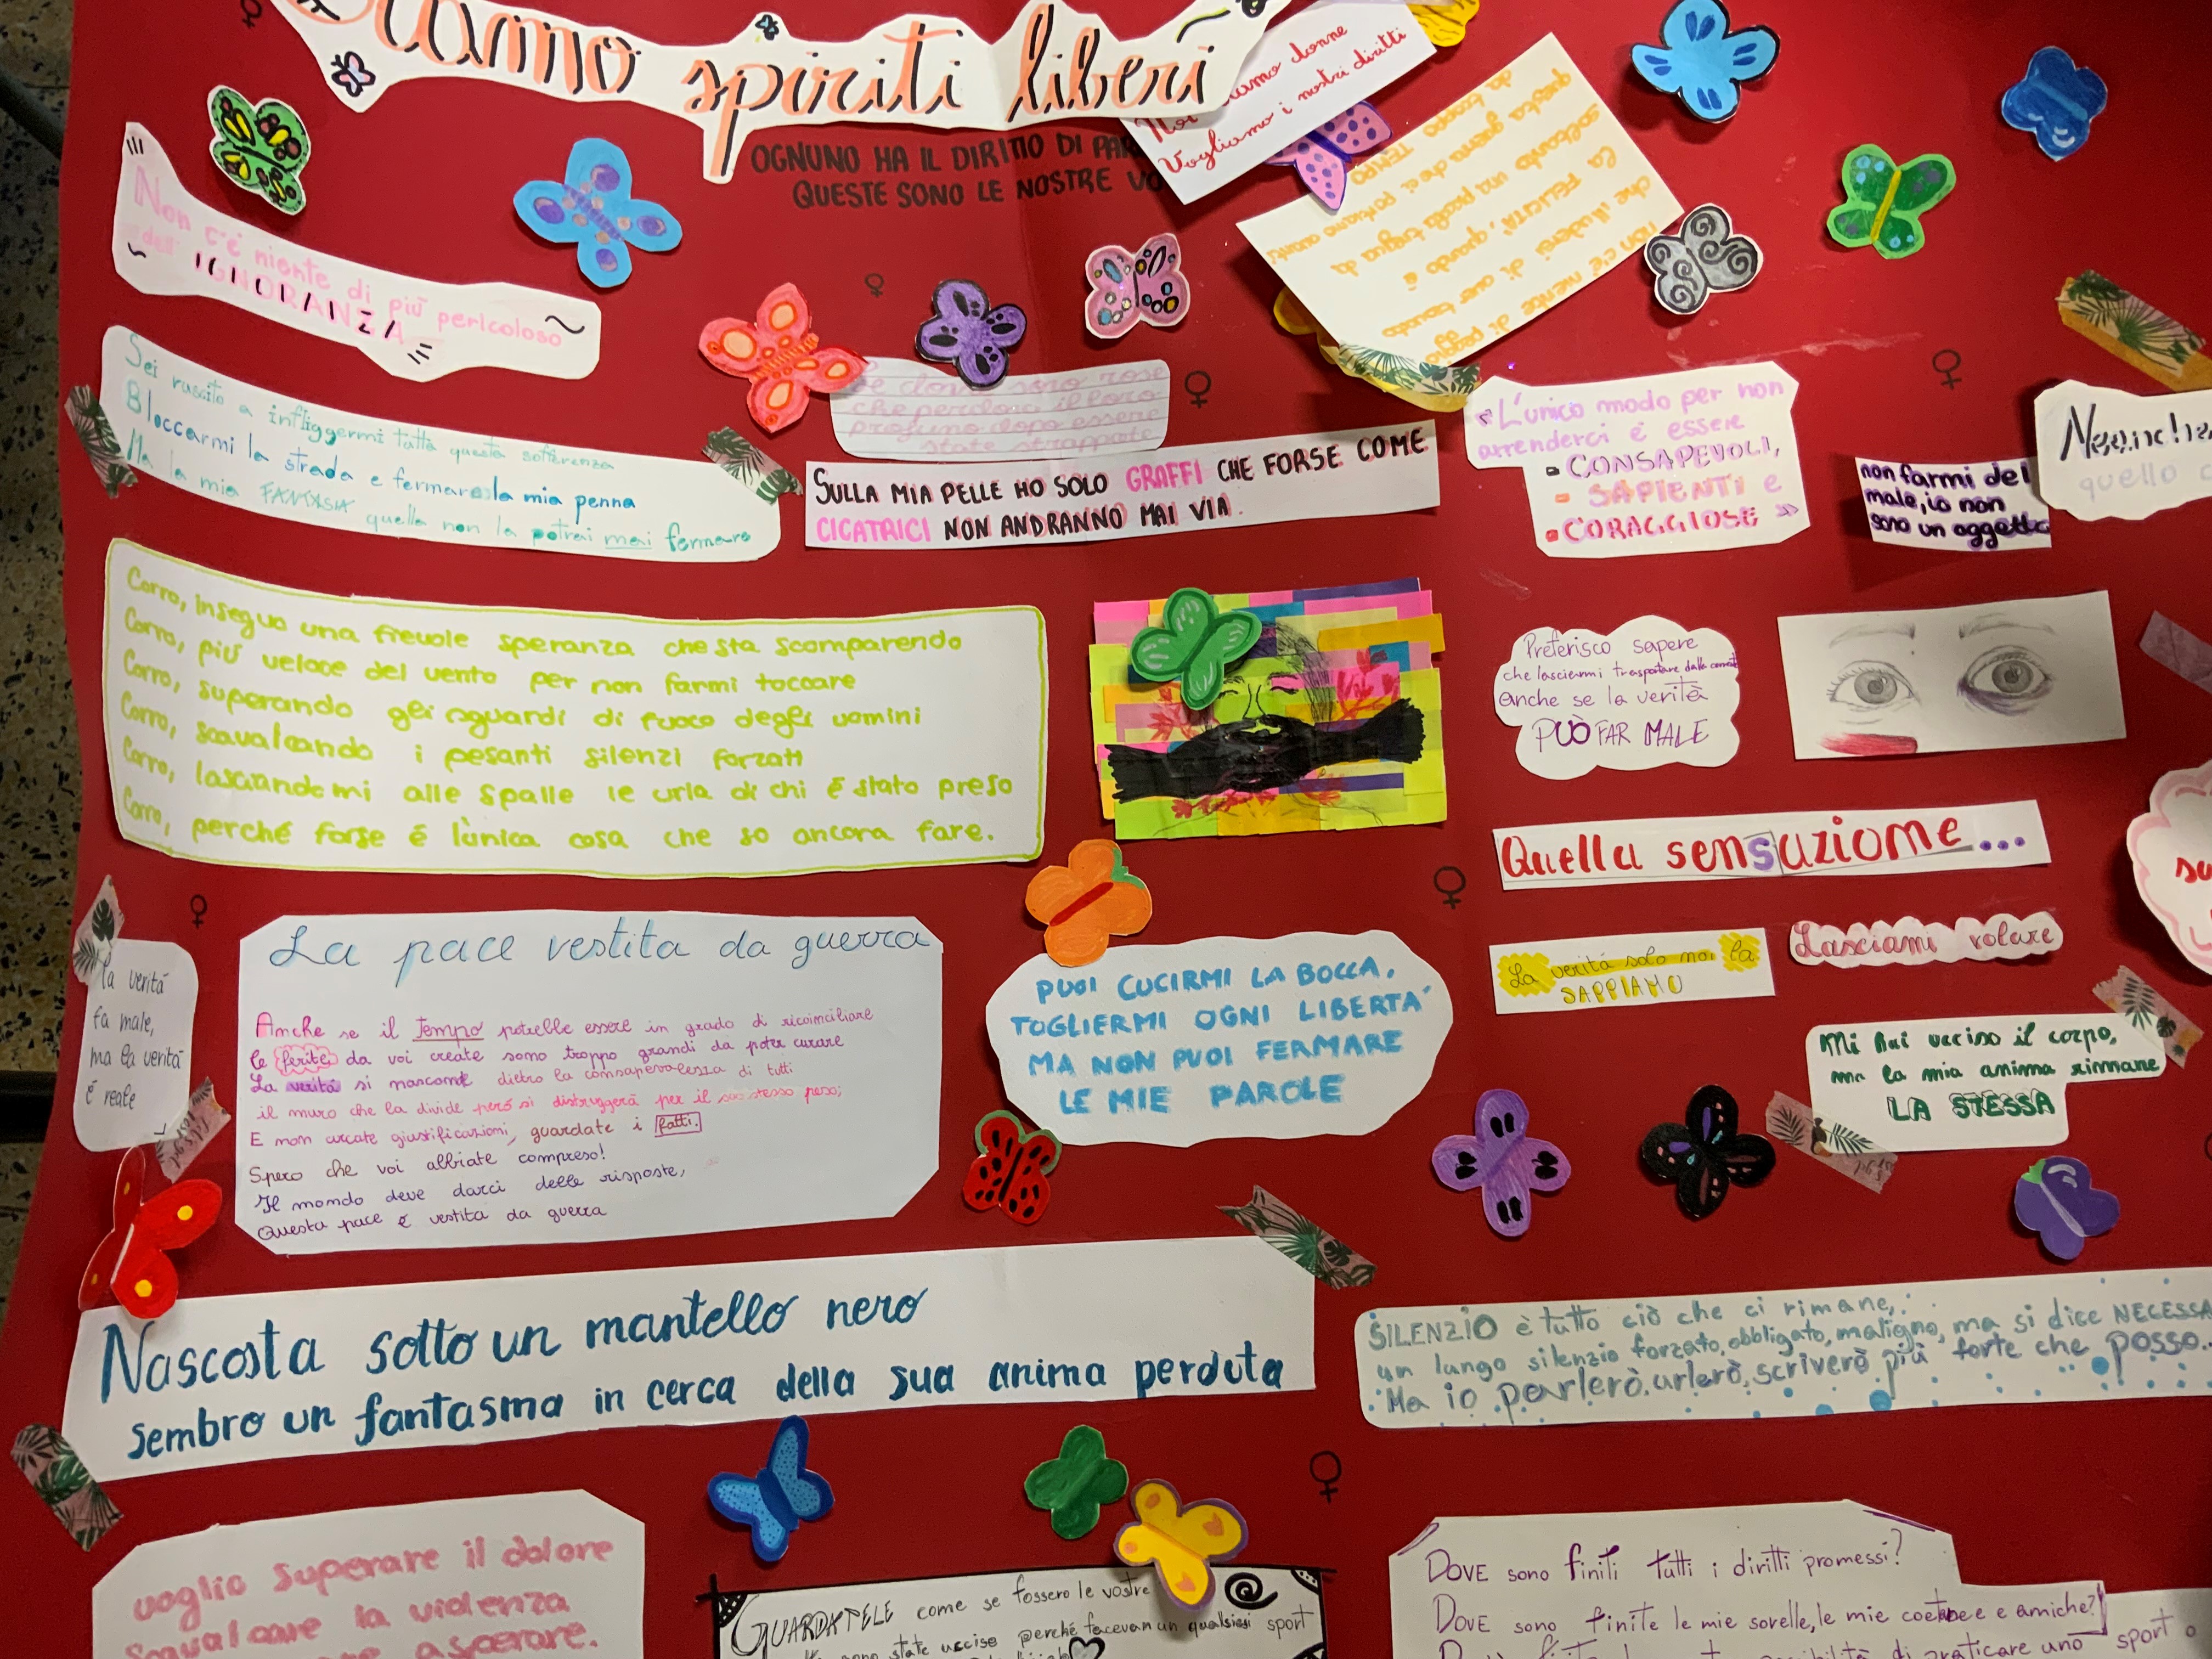 spiriti liberi
OGNUNO HA IL DIRITTO DI
QUESTE SONO LE NOSTRE
donne
Vogliamo i nostri diritti
non c'è niente di peggio
che illudersi di aver trovato
la FELICITÀ, quando è
soltanto una piccola tregua da
questa guerra che ci portiamo avanti
da troppo TEMPO
Non c'é niente di più pericoloso
dell' IGNORANZA
Sei riuscito a infliggermi tutta questa sofferenza
Bloccarmi la strada e fermare la mia penna
Ma la mia FANTASIA quella non la potrai mai fermare
Le donne sono rose
che perdono il loro
profumo dopo essere
state strappate
SULLA MIA PELLE HO SOLO GRAFFI CHE FORSE COME
CICATRICI NON ANDRANNO MAI VIA.
«L'unico modo per non
arrenderci é essere
- CONSAPEVOLI,
- SAPIENTI e
• CORAGGIOSE »
non farmi del
male, io non
sono un oggetto
quello
Corro, inseguo una fievole speranza che sta scomparendo
Corro, più veloce del vento per non farmi toccare
Corro, superando gli sguardi di fuoco degli uomini
Corro, scavalcando i pesanti silenzi forzati
Corro, lasciandomi alle spalle le urla di chi é stato preso
Corro, perché forse é l'unica cosa che so ancora fare.
Preferisco sapere
che lasciarmi trasportare dalla corrente
anche se la verità
PUÒ FAR MALE
Quella sensazione...
La verità solo noi la
SAPPIAMO
Lasciami volare
la verità
fa male,
ma la verità
é reale
La pace vestita da guerra
Anche se il tempo potrebbe essere in grado di riconciliare
le ferite da voi create sono troppo grandi da poter curare
La verità si nasconde dietro la consapevolezza di tutti
il muro che la divide peró si distruggerà per il suo stesso peso;
E non cercate giustificazioni, guardate i fatti.
Spero che voi abbiate compreso!
Il mondo deve darci delle risposte,
Questa pace é vestita da guerra
PUOI CUCIRMI LA BOCCA,
TOGLIERMI OGNI LIBERTA'
MA NON PUOI FERMARE
LE MIE PAROLE
Mi hai ucciso il corpo,
ma la mia anima rimane
LA STESSA
Nascosta sotto un mantello nero
sembro un fantasma in cerca della sua anima perduta
SILENZIO è tutto ciò che ci rimane,
un lungo silenzio forzato, obbligato, maligno, ma si dice
Ma io parlerò, urlerò, scriverò più forte che posso..
voglio superare il dolore
la violenza
GUARDATELE come se fossero le vostre
state uccise perché facevan un qualsiasi sport
DOVE sono finiti tutti i diritti promessi?
DOVE sono finite le mie sorelle, le mie coetanee e amiche?
di praticare uno sport o